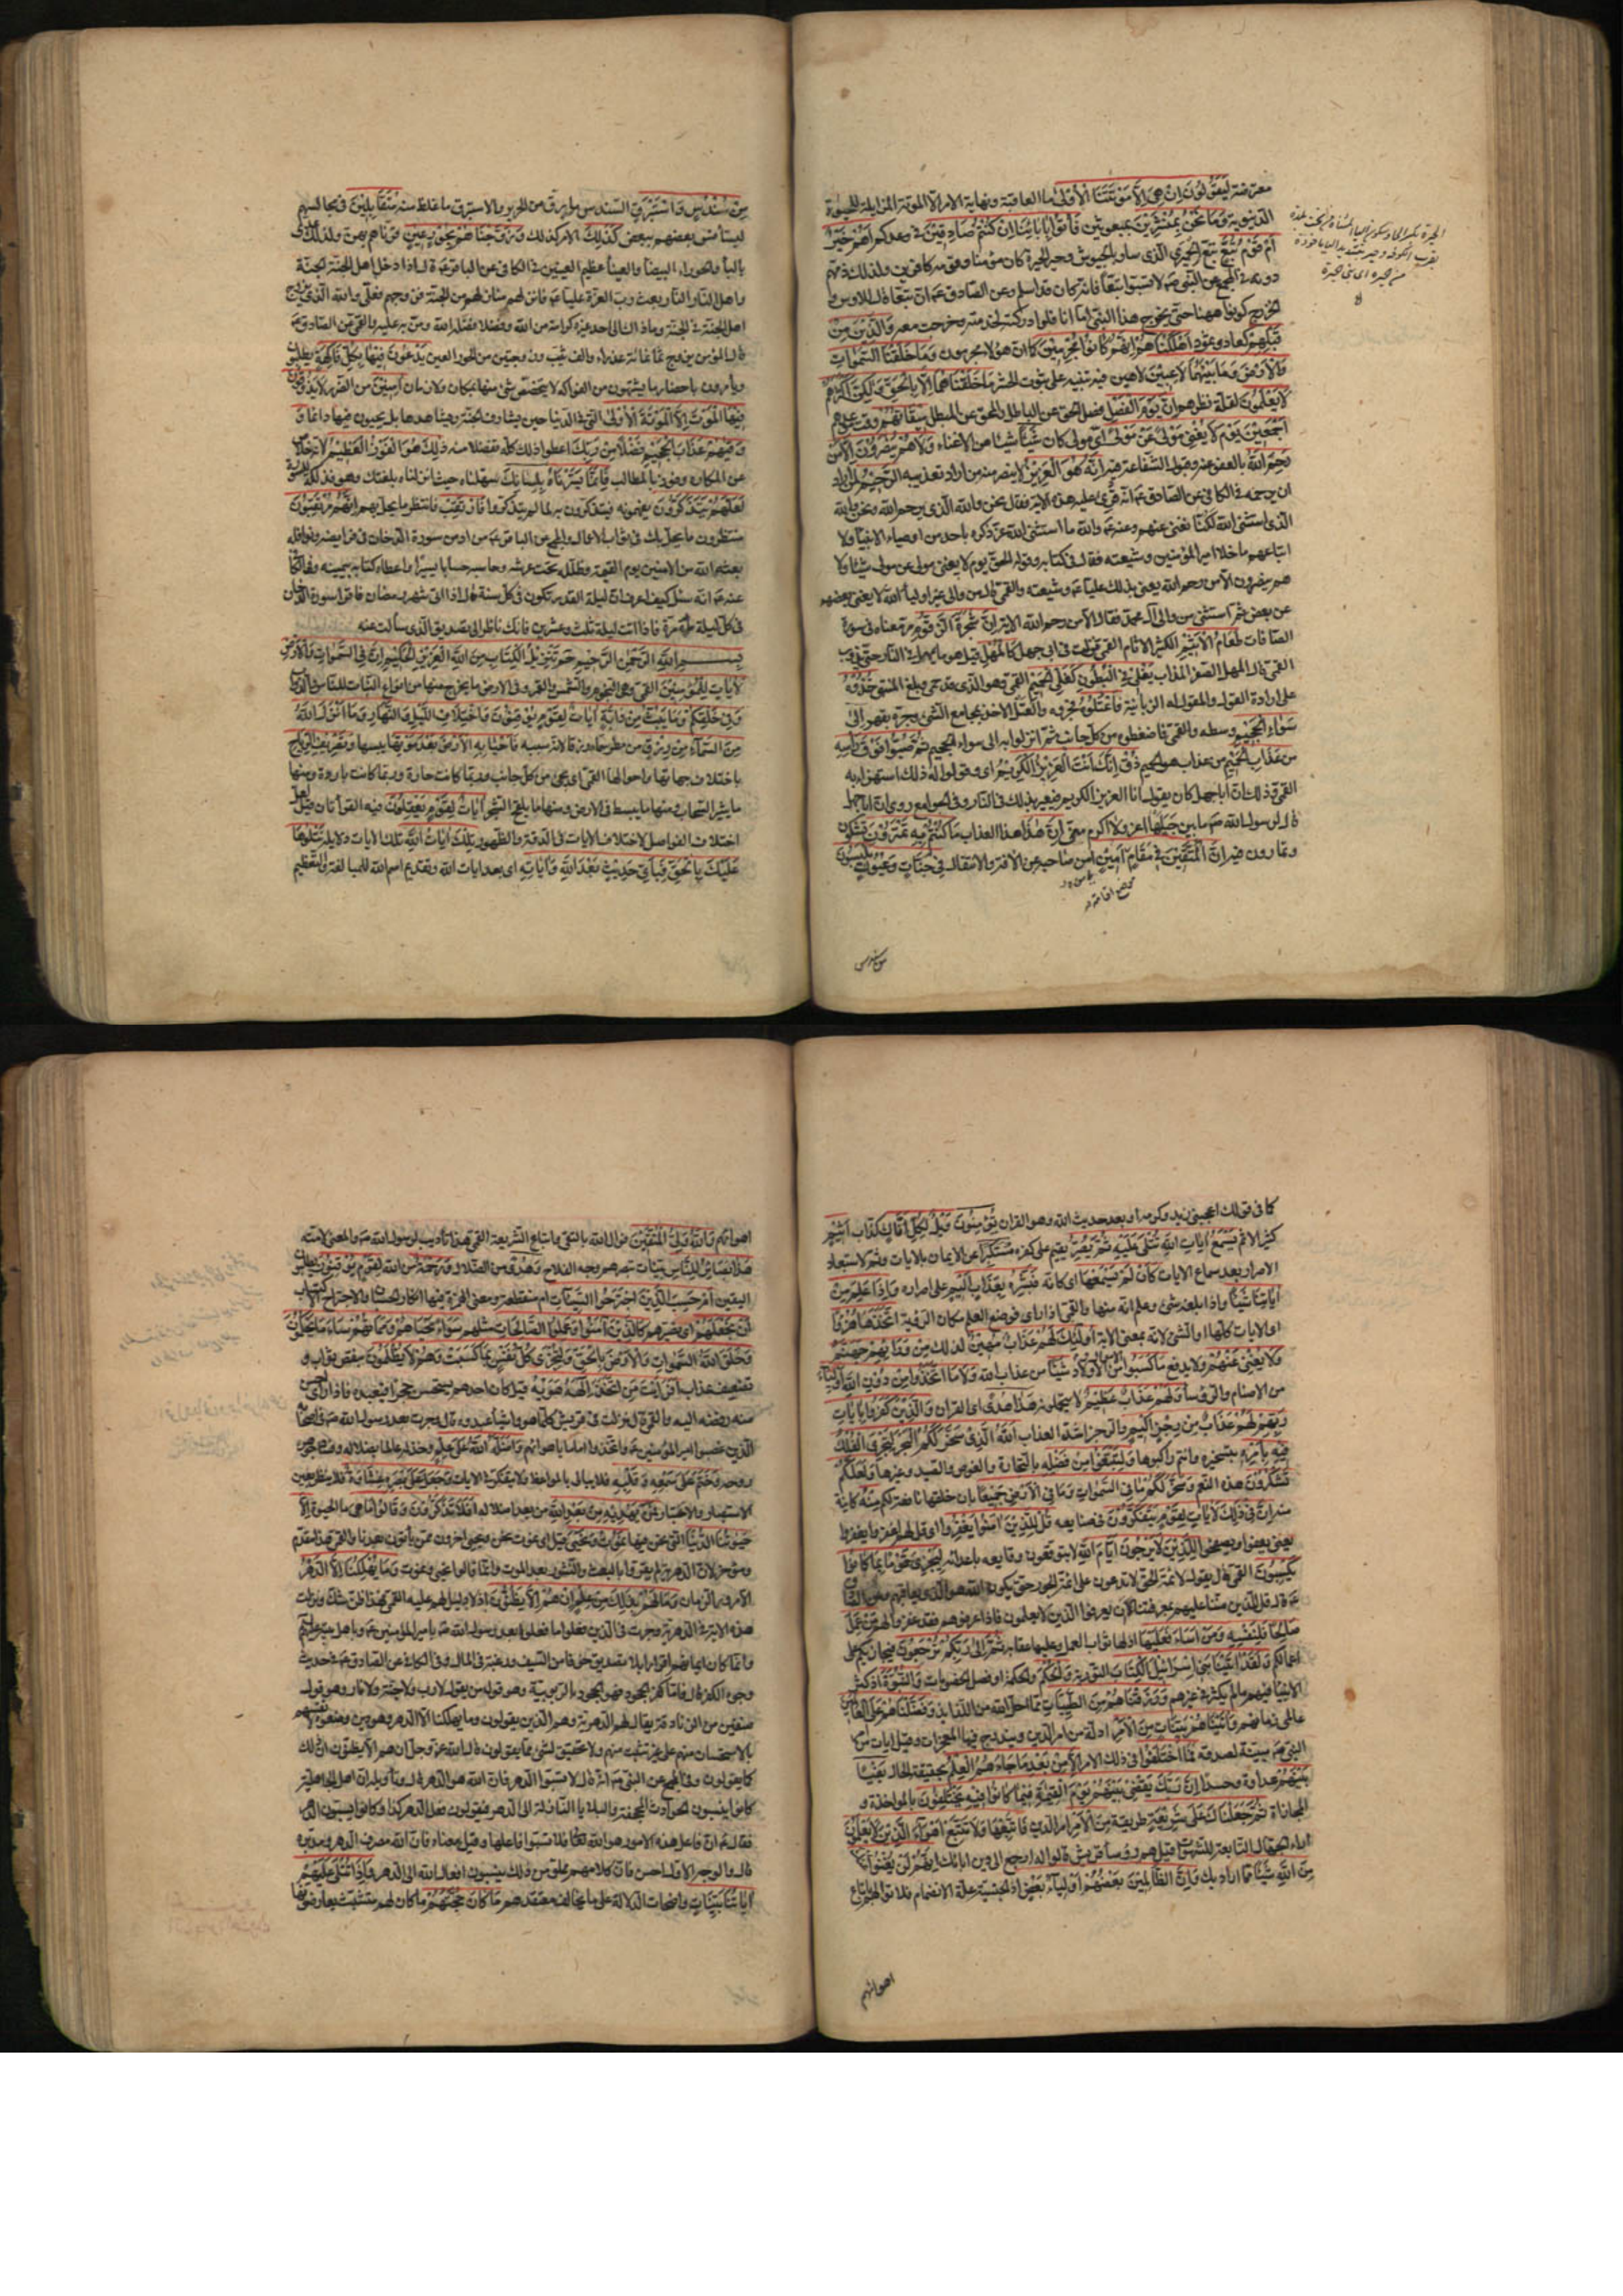 معترضة لَيَقُولُونَ اِنْ هِيَ اِلَّا مَوْتَتُنَا الْأُولىٰ ما العاقبة ونهاية الامر الا الموتة المزايلة للحيوة
الدنيوية وَمَا نَحْنُ بِمُنْشَرِينَ بمبعوثين فَأْتُوا بِآبَائِنَا اِنْ كُنْتُمْ صَادِقِينَ في وعدكم اَهُمْ خَيْرٌ
اَمْ قَوْمُ تُبَّعٍ تبع الحميري الذي سار بالجيوش وحير الحيرة كان مؤمنا وقومه كافرين ولذلك ذمهم
دونه في المجمع عن النبي ص لا تسبوا تبعا فانه كان قد اسلم وعن الصادق ع ان تبعا قال للاوس و
الخزرج كونوا ههنا حتى يخرج هذا النبي اما انا فلو ادركته لخدمته وخرجت معه وَالَّذِينَ مِنْ
قَبْلِهِمْ كعاد وثمود اَهْلَكْنَاهُمْ اِنَّهُمْ كَانُوا مُجْرِمِينَ كما ان هؤلاء مجرمون وَمَا خَلَقْنَا السَّمٰوَاتِ
وَالْاَرْضَ وَمَا بَيْنَهُمَا لَاعِبِينَ لاهين فيه تنبيه على ثبوت الحشر مَا خَلَقْنَاهُمَا اِلَّا بِالْحَقِّ وَلٰكِنَّ اَكْثَرَهُمْ
لَا يَعْلَمُونَ لقلة نظرهم اِنَّ يَوْمَ الْفَصْلِ فصل الحق عن الباطل والمحق عن المبطل مِيقَاتُهُمْ وقت موعدهم
اَجْمَعِينَ يَوْمَ لَا يُغْنِي مَوْلًى عَنْ مَوْلًى اي مولى كان شَيْئًا شيئا من الاغناء وَلَا هُمْ يُنْصَرُونَ اِلَّا مَنْ
رَحِمَ اللّٰهُ بالعفو عنه وقبول الشفاعة فيه اِنَّهُ هُوَ الْعَزِيزُ لا ينصر منه من اراد تعذيبه الرَّحِيمُ لمن اراد
ان يرحمه في الكافي عن الصادق ع انه قرئ عليه هذه الاية فقال نحن والله الذي يرحم الله ونحن والله
الذي استثنى الله لكنا نغني عنهم وعنه ع والله ما استثنى الله عز ذكره باحد من اوصياء الانبياء ولا
اتباعهم ما خلا امير المؤمنين وشيعته فقال في كتابه وقوله الحق يوم لا يغني مولى عن مولى شيئا ولا
هم ينصرون الا من رحم الله يعني بذلك عليا ع وشيعته والقمي قال من والى غير اولياء الله لا يغني بعضهم
عن بعض ثم استثنى من والى آل محمد فقال الا من رحم الله الاية اِنَّ شَجَرَةَ الزَّقُّومِ مر معناه في سورة
الصافات طَعَامُ الْاَثِيمِ الكثير الاثام القمي نزلت في ابي جهل كَالْمُهْلِ قيل هو ما يمهل في النار حتى يذوب
القمي قال المهل الصفر المذاب يَغْلِي فِي الْبُطُونِ كَغَلْيِ الْحَمِيمِ القمي وهو الذي قد حمي وبلغ المنتهى خُذُوهُ
على ارادة القول والمقول له الزبانية فَاعْتِلُوهُ فجروه والعتل الاخذ بمجامع الشيء وجره بقهر اِلىٰ
سَوَاءِ الْجَحِيمِ وسطه والقمي فاضغطوه من كل جانب ثم انزلوا به الى سواء الجحيم ثُمَّ صُبُّوا فَوْقَ رَأْسِهِ
مِنْ عَذَابِ الْحَمِيمِ من عذاب هو الحميم ذُقْ اِنَّكَ اَنْتَ الْعَزِيزُ الْكَرِيمُ اي وقولوا له ذلك استهزاء به
القمي وذلك ان ابا جهل كان يقول انا العزيز الكريم فيعير بذلك في النار وفي الجوامع روي ان ابا جهل
قال لرسول الله ص ما بين جبليها اعز ولا اكرم مني اِنَّ هٰذَا هذا العذاب مَا كُنْتُمْ بِهِ تَمْتَرُونَ تشكون
وتمارون فيه اِنَّ الْمُتَّقِينَ فِي مَقَامٍ اَمِينٍ امن صاحبه عن الافة والانتقال فِي جَنَّاتٍ وَعُيُونٍ يَلْبَسُونَ
موضع اقامة
من سندس
مِنْ سُنْدُسٍ وَاِسْتَبْرَقٍ السندس ما رق من الحرير والاستبرق ما غلظ منه مُتَقَابِلِينَ في مجالسهم
ليستأنس بعضهم ببعض كَذٰلِكَ الامر كذلك وَزَوَّجْنَاهُمْ بِحُورٍ عِينٍ قرناهم بهن ولذلك عدي
بالباء والحوراء البيضاء والعيناء عظيم العينين في الكافي عن الباقر ع قال اذا دخل اهل الجنة الجنة
واهل النار النار بعث رب العزة عليا ع فانزلهم منازلهم من الجنة فزوجهم فعلي والله الذي يزوج
اهل الجنة في الجنة وما ذاك الى احد غيره كرامة من الله وفضلا فضله الله ومن به عليه والقمي عن الصادق ع
قال المؤمن يزوج ثمانمائة عذراء والف ثيب وزوجتين من الحور العين يَدْعُونَ فِيهَا بِكُلِّ فَاكِهَةٍ يطلبون
ويأمرون باحضار ما يشتهون من الفواكه لا يتخصص شيء منها بمكان ولا زمان آمِنِينَ من الضرر لَا يَذُوقُونَ
فِيهَا الْمَوْتَ اِلَّا الْمَوْتَةَ الْاُولىٰ التي في الدنيا حين يشارف الجنة ويشاهدها بل يحيون فيها دائما وَ
وَقٰيهُمْ عَذَابَ الْجَحِيمِ فَضْلًا مِنْ رَبِّكَ اعطوا ذلك كله تفضلا منه ذٰلِكَ هُوَ الْفَوْزُ الْعَظِيمُ لانه خلاص
عن المكاره وفوز بالمطالب فَاِنَّمَا يَسَّرْنَاهُ بِلِسَانِكَ سهلناه حيث انزلناه بلغتك وهو فذلكة للسورة
لَعَلَّهُمْ يَتَذَكَّرُونَ يفهمونه فيتذكرون به لما لم يتذكروا فَارْتَقِبْ فانتظر ما يحل بهم اِنَّهُمْ مُرْتَقِبُونَ
منتظرون ما يحل بك في ثواب الاعمال والمجمع عن الباقر ع من ادمن سورة الدخان في فرايضه ونوافله
بعثه الله من الامنين يوم القيمة وظلله تحت عرشه وحاسبه حسابا يسيرا واعطاه كتابه بيمينه وفي الكافي
عنه ع انه سئل كيف اعرف ان ليلة القدر تكون في كل سنة قال اذا اتى شهر رمضان فاقرأ سورة الدخان
في كل ليلة مائة مرة فاذا اتت ليلة ثلث وعشرين فانك ناظر الى تصديق الذي سألت عنه
بِسْمِ اللّٰهِ الرَّحْمٰنِ الرَّحِيمِ حٰمٓ تَنْزِيلُ الْكِتَابِ مِنَ اللّٰهِ الْعَزِيزِ الْحَكِيمِ اِنَّ فِي السَّمٰوَاتِ وَالْاَرْضِ
لَآيَاتٍ لِلْمُؤْمِنِينَ القمي وهي النجوم والشمس والقمر وفي الارض ما يخرج منها من انواع النبات للناس والدواب
وَفِي خَلْقِكُمْ وَمَا يَبُثُّ مِنْ دَابَّةٍ آيَاتٌ لِقَوْمٍ يُوقِنُونَ وَاخْتِلَافِ اللَّيْلِ وَالنَّهَارِ وَمَا اَنْزَلَ اللّٰهُ
مِنَ السَّمَاءِ مِنْ رِزْقٍ من مطر سماه رزقا لانه سببه فَاَحْيَا بِهِ الْاَرْضَ بَعْدَ مَوْتِهَا يبسها وَتَصْرِيفِ الرِّيَاحِ
باختلاف جهاتها واحوالها القمي اي تجيء من كل جانب وربما كانت حارة وربما كانت باردة ومنها
ما يثير السحاب ومنها ما يبسط في الارض ومنها ما يلقح الشجر آيَاتٌ لِقَوْمٍ يَعْقِلُونَ فيه القراءتان قيل لعل
اختلاف الفواصل لاختلاف الايات في الدقة والظهور تِلْكَ آيَاتُ اللّٰهِ تلك الايات دلايله نَتْلُوهَا
عَلَيْكَ بِالْحَقِّ فَبِاَيِّ حَدِيثٍ بَعْدَ اللّٰهِ وَآيَاتِهِ اي بعد ايات الله وتقديم اسم الله للمبالغة والتعظيم
كما في قولك اعجبني زيد وكرمه او بعد حديث الله وهو القران يُؤْمِنُونَ وَيْلٌ لِكُلِّ اَفَّاكٍ كذاب اَثِيمٍ
كثير الاثم يَسْمَعُ آيَاتِ اللّٰهِ تُتْلىٰ عَلَيْهِ ثُمَّ يُصِرُّ يقيم على كفره مُسْتَكْبِرًا عن الايمان بالايات وثم لاستبعاد
الاصرار بعد سماع الايات كَاَنْ لَمْ يَسْمَعْهَا اي كانه فَبَشِّرْهُ بِعَذَابٍ اَلِيمٍ على اصراره وَاِذَا عَلِمَ مِنْ
آيَاتِنَا شَيْئًا واذا بلغه شيء وعلم انه منها والقمي اذا راى فوضع العلم مكان الرؤية اتَّخَذَهَا هُزُوًا
اي الايات كلها او الشيء لانه بمعنى الاية اُولٰئِكَ لَهُمْ عَذَابٌ مُهِينٌ لذلك مِنْ وَرَائِهِمْ جَهَنَّمُ
وَلَا يُغْنِي عَنْهُمْ ولا يدفع مَا كَسَبُوا من الاموال والاولاد شَيْئًا من عذاب الله وَلَا مَا اتَّخَذُوا مِنْ دُونِ اللّٰهِ اَوْلِيَاءَ
من الاصنام والرؤساء وَلَهُمْ عَذَابٌ عَظِيمٌ لا يتحملونه هٰذَا هُدًى اي القران وَالَّذِينَ كَفَرُوا بِآيَاتِ
رَبِّهِمْ لَهُمْ عَذَابٌ مِنْ رِجْزٍ اَلِيمٌ والرجز اشد العذاب اَللّٰهُ الَّذِي سَخَّرَ لَكُمُ الْبَحْرَ لِتَجْرِيَ الْفُلْكُ
فِيهِ بِاَمْرِهِ بتسخيره وانتم راكبوها وَلِتَبْتَغُوا مِنْ فَضْلِهِ بالتجارة والغوص والصيد وغيرها وَلَعَلَّكُمْ
تَشْكُرُونَ هذه النعم وَسَخَّرَ لَكُمْ مَا فِي السَّمٰوَاتِ وَمَا فِي الْاَرْضِ جَمِيعًا بان خلقها نافعة لكم مِنْهُ كائنة
منه اِنَّ فِي ذٰلِكَ لَآيَاتٍ لِقَوْمٍ يَتَفَكَّرُونَ في صنايعه قُلْ لِلَّذِينَ آمَنُوا يَغْفِرُوا اي قل لهم اغفروا يغفروا
يعني يعفوا ويصفحوا لِلَّذِينَ لَا يَرْجُونَ اَيَّامَ اللّٰهِ لا يتوقعون وقايعه باعدائه لِيَجْزِيَ قَوْمًا بِمَا كَانُوا
يَكْسِبُونَ القمي قال يقول لائمة الحق لا تدعون على ائمة الجور حتى يكون الله هو الذي يعاقبهم وعن الصادق
ع قال قل للذين مننا عليهم بمعرفتنا ان يعرفوا الذين لا يعلمون فاذا عرفوهم فقد غفروا لهم مَنْ عَمِلَ
صَالِحًا فَلِنَفْسِهِ وَمَنْ اَسَاءَ فَعَلَيْهَا اذ لها ثواب العمل وعليها عقابه ثُمَّ اِلىٰ رَبِّكُمْ تُرْجَعُونَ فيجازيكم على
اعمالكم وَلَقَدْ آتَيْنَا بَنِي اِسْرَائِيلَ الْكِتَابَ التورية وَالْحُكْمَ والحكمة او فصل الخصومات وَالنُّبُوَّةَ اذ كثر
الانبياء فيهم ما لم يكثر في غيرهم وَرَزَقْنَاهُمْ مِنَ الطَّيِّبَاتِ مما احل الله من اللذايذ وَفَضَّلْنَاهُمْ عَلَى الْعَالَمِينَ
عالمي زمانهم وَآتَيْنَاهُمْ بَيِّنَاتٍ مِنَ الْاَمْرِ ادلة من امر الدين ويندرج فيها المعجزات وقيل ايات من امر
النبي ص مبينة لصدقه فَمَا اخْتَلَفُوا في ذلك الامر اِلَّا مِنْ بَعْدِ مَا جَاءَهُمُ الْعِلْمُ بحقيقة الحال بَغْيًا
بَيْنَهُمْ عداوة وحسدا اِنَّ رَبَّكَ يَقْضِي بَيْنَهُمْ يَوْمَ الْقِيٰمَةِ فِيمَا كَانُوا فِيهِ يَخْتَلِفُونَ بالمؤاخذة و
المجازاة ثُمَّ جَعَلْنَاكَ عَلىٰ شَرِيعَةٍ طريقة مِنَ الْاَمْرِ امر الدين فَاتَّبِعْهَا وَلَا تَتَّبِعْ اَهْوَاءَ الَّذِينَ لَا يَعْلَمُونَ
اراء الجهال التابعة للشهوات قيل هم رؤساء قريش قالوا له ارجع الى دين ابائك اِنَّهُمْ لَنْ يُغْنُوا عَنْكَ
مِنَ اللّٰهِ شَيْئًا مما اراد بك وَاِنَّ الظَّالِمِينَ بَعْضُهُمْ اَوْلِيَاءُ بَعْضٍ اذ الجنسية علة الانضمام فلا توالهم باتباع
اهوائهم
اهوائهم وَاللّٰهُ وَلِيُّ الْمُتَّقِينَ فوال الله بالتقى واتباع الشريعة القمي هذا تأديب لرسول الله ص والمعنى لامته
هٰذَا بَصَائِرُ لِلنَّاسِ بينات تبصرهم وجه الفلاح وَهُدًى من الضلالة وَرَحْمَةٌ من الله لِقَوْمٍ يُوقِنُونَ يطلبون
اليقين اَمْ حَسِبَ الَّذِينَ اجْتَرَحُوا السَّيِّئَاتِ ام منقطعة ومعنى الهمزة فيها انكار الحسبان والاجتراح الاكتساب
اَنْ نَجْعَلَهُمْ ان نصيرهم كَالَّذِينَ آمَنُوا وَعَمِلُوا الصَّالِحَاتِ مثلهم سَوَاءً مَحْيَاهُمْ وَمَمَاتُهُمْ سَاءَ مَا يَحْكُمُونَ
وَخَلَقَ اللّٰهُ السَّمٰوَاتِ وَالْاَرْضَ بِالْحَقِّ وَلِتُجْزىٰ كُلُّ نَفْسٍ بِمَا كَسَبَتْ وَهُمْ لَا يُظْلَمُونَ بنقص ثواب و
تضعيف عذاب اَفَرَاَيْتَ مَنِ اتَّخَذَ اِلٰهَهُ هَوٰيهُ قيل كان احدهم يستحسن حجرا فيعبده فاذا راى احسن
منه رفضه اليه والقمي قال نزلت في قريش كلما هووا شيئا عبدوه قال وجرت بعد رسول الله ص في اصحابه
الذين غصبوا امير المؤمنين ع واتخذوا اماما باهوائهم وَاَضَلَّهُ اللّٰهُ عَلىٰ عِلْمٍ وخذله عالما بضلاله وفساد جوهر
روحه وَخَتَمَ عَلىٰ سَمْعِهِ وَقَلْبِهِ فلا يبالي بالمواعظ ولا يتفكر في الايات وَجَعَلَ عَلىٰ بَصَرِهِ غِشَاوَةً فلا ينظر بعين
الاستبصار والاعتبار فَمَنْ يَهْدِيهِ مِنْ بَعْدِ اللّٰهِ من بعد اضلاله اَفَلَا تَذَكَّرُونَ وَقَالُوا مَا هِيَ ما الحيوة اِلَّا
حَيٰوتُنَا الدُّنْيَا التي نحن فيها نَمُوتُ وَنَحْيىٰ قيل اي نموت نحن ويحيى اخرون ممن يأتون بعدنا والقمي هذا مقدم
ومؤخر لان الدهرية لم يقروا بالبعث والنشور بعد الموت وانما قالوا نحيى ونموت وَمَا يُهْلِكُنَا اِلَّا الدَّهْرُ
الا مرور الزمان وَمَا لَهُمْ بِذٰلِكَ مِنْ عِلْمٍ اِنْ هُمْ اِلَّا يَظُنُّونَ اذ لا دليل لهم عليه القمي فهذا ظن شك ونزلت
هذه الاية في الدهرية وجرت في الذين فعلوا ما فعلوا بعد رسول الله ص بامير المؤمنين ع وباهل بيته عليهم
وانما كان ايمانهم اقرارا بلا تصديق خوفا من السيف ورغبة في المال وفي الكافي عن الصادق ع في حديث
وجوه الكفر قال فاما كفر الجحود فهو الجحود بالربوبية وهو قول من يقول لا رب ولا جنة ولا نار وهو قول
صنفين من الزنادقة يقال لهم الدهرية وهم الذين يقولون وما يهلكنا الا الدهر وهو دين وضعوه لانفسهم
بالاستحسان منهم على غير تثبت منهم ولا تحقيق لشيء مما يقولون قال الله عز وجل ان هم الا يظنون ان ذلك
كما يقولون وفي المجمع عن النبي ص انه قال لا تسبوا الدهر فان الله هو الدهر قال وتأويله ان اهل الجاهلية
كانوا ينسبون الحوادث المجحفة والبلايا النازلة الى الدهر فيقولون فعل الدهر كذا وكانوا يسبون الدهر
فقال ع ان فاعل هذه الامور هو الله تعالى فلا تسبوا فاعلها وقيل معناه فان الله مصرف الدهر ومدبره
قال والوجه الاول احسن فان كلامهم مملو من ذلك ينسبون افعال الله الى الدهر وَاِذَا تُتْلىٰ عَلَيْهِمْ
آيَاتُنَا بَيِّنَاتٍ واضحات الدلالة على ما يخالف معتقدهم مَا كَانَ حُجَّتَهُمْ ما كان لهم متشبث يعارضونها